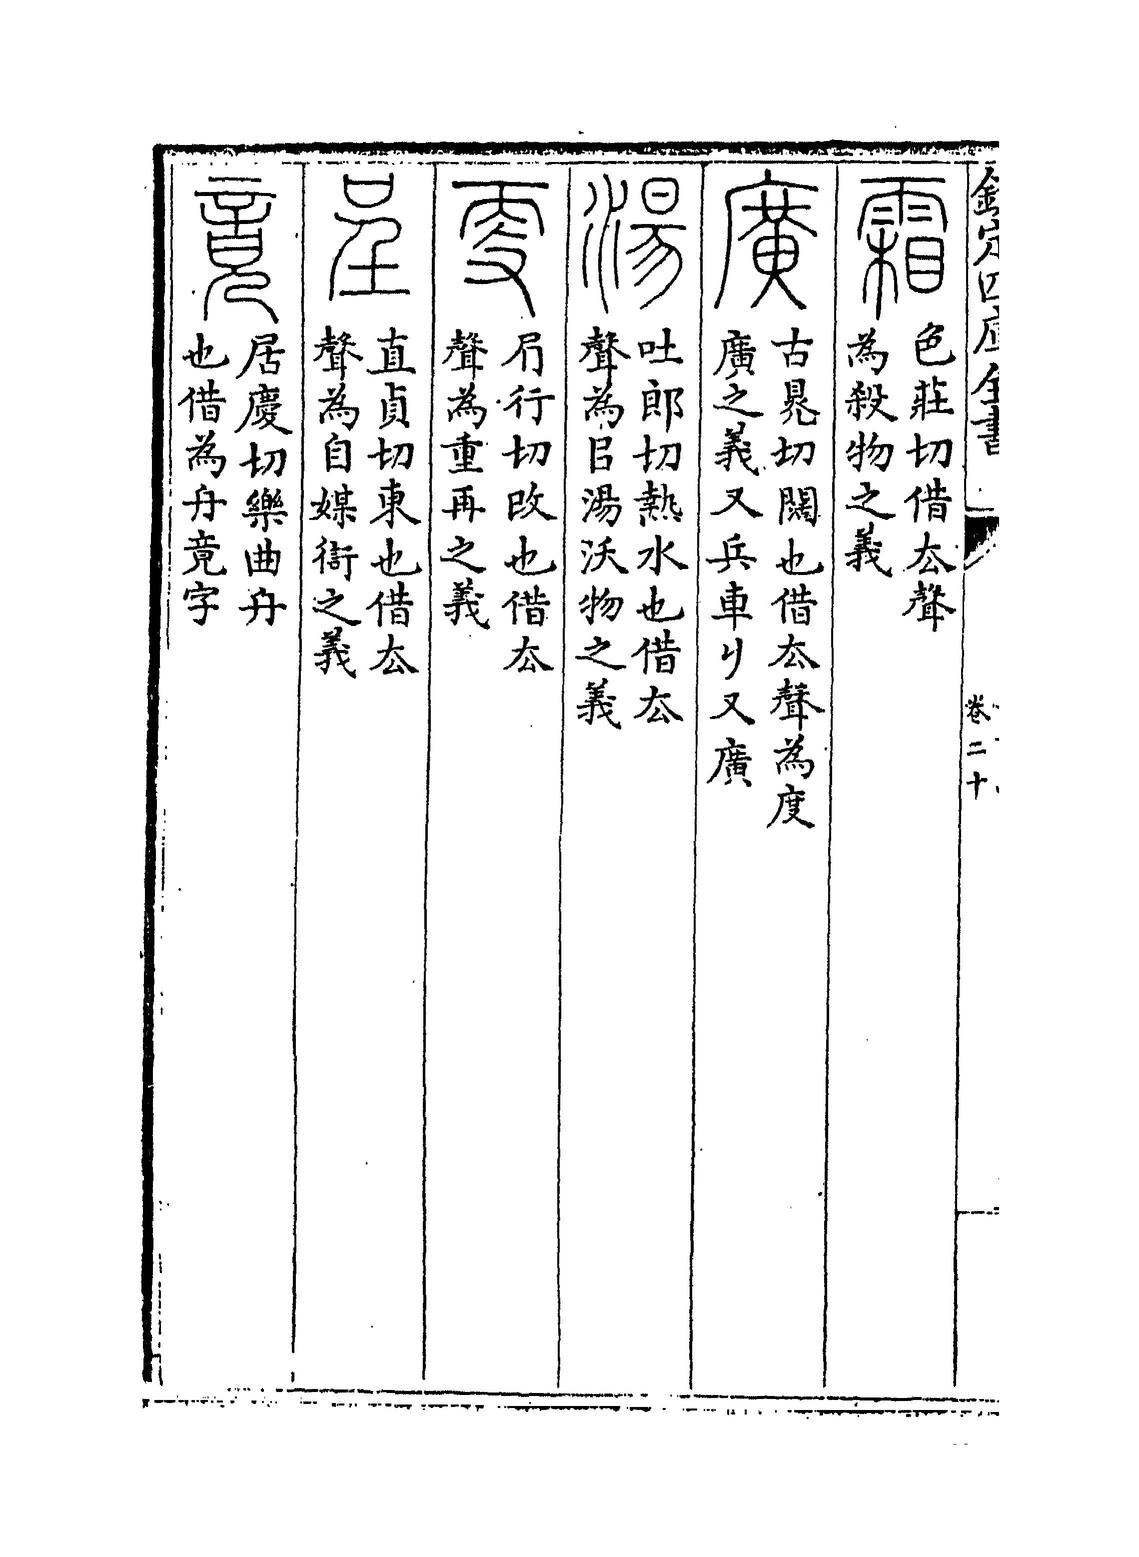 欽定四庫全書
卷二十
霜
色莊切借厺聲
為殺物之義
廣
古晃切闊也借厺聲為度
廣之義又兵車刂又廣
湯
吐郎切熱水也借厺
聲為㠯湯沃物之義
㪅
行切改也借厺
聲為重再之義
呈
直貞切東也借厺
聲為自媒衒之義
竟
居慶切樂曲舟
也借為舟竟字